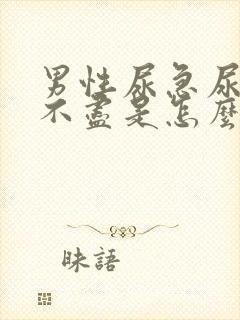 男性尿急尿
不盡是怎麼
昧語